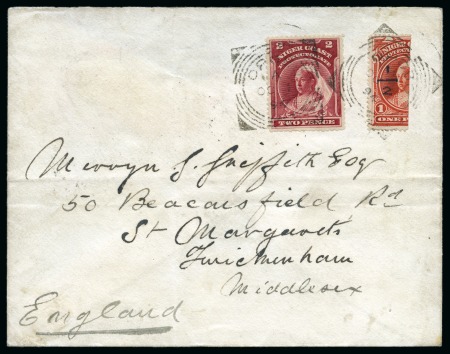 2 2
NIGER COAST
PROTECTORATE
TWO PENCE
1
2
1
Mervyn G. Griffith Esq
50 Beaconsfield Rd
St Margarets
Twickenham
Middlesex
England